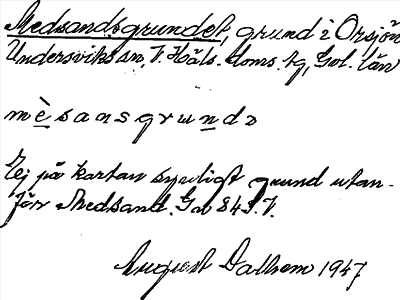 Medsandsgrundet, grund i Örsjön
Undersviks sn, V. Häls. doms. tg, Gvl. län
mèsansgrundə
Ej på kartan synligt grund utan-
för Medsand. Ga 843. V.
August Dalhem 1947